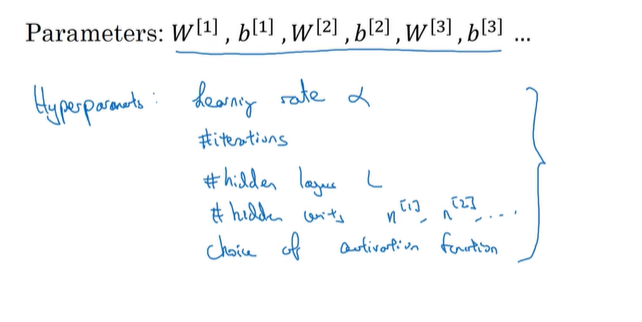 Parameters: W[1] , b[1] , W[2] , b[2] , W[3] , b[3] ...
Hyperparamets: Learnig rate α
#iterations
#hidden layers L
# hidden units n[1], n[2], ....
Choice of activation function